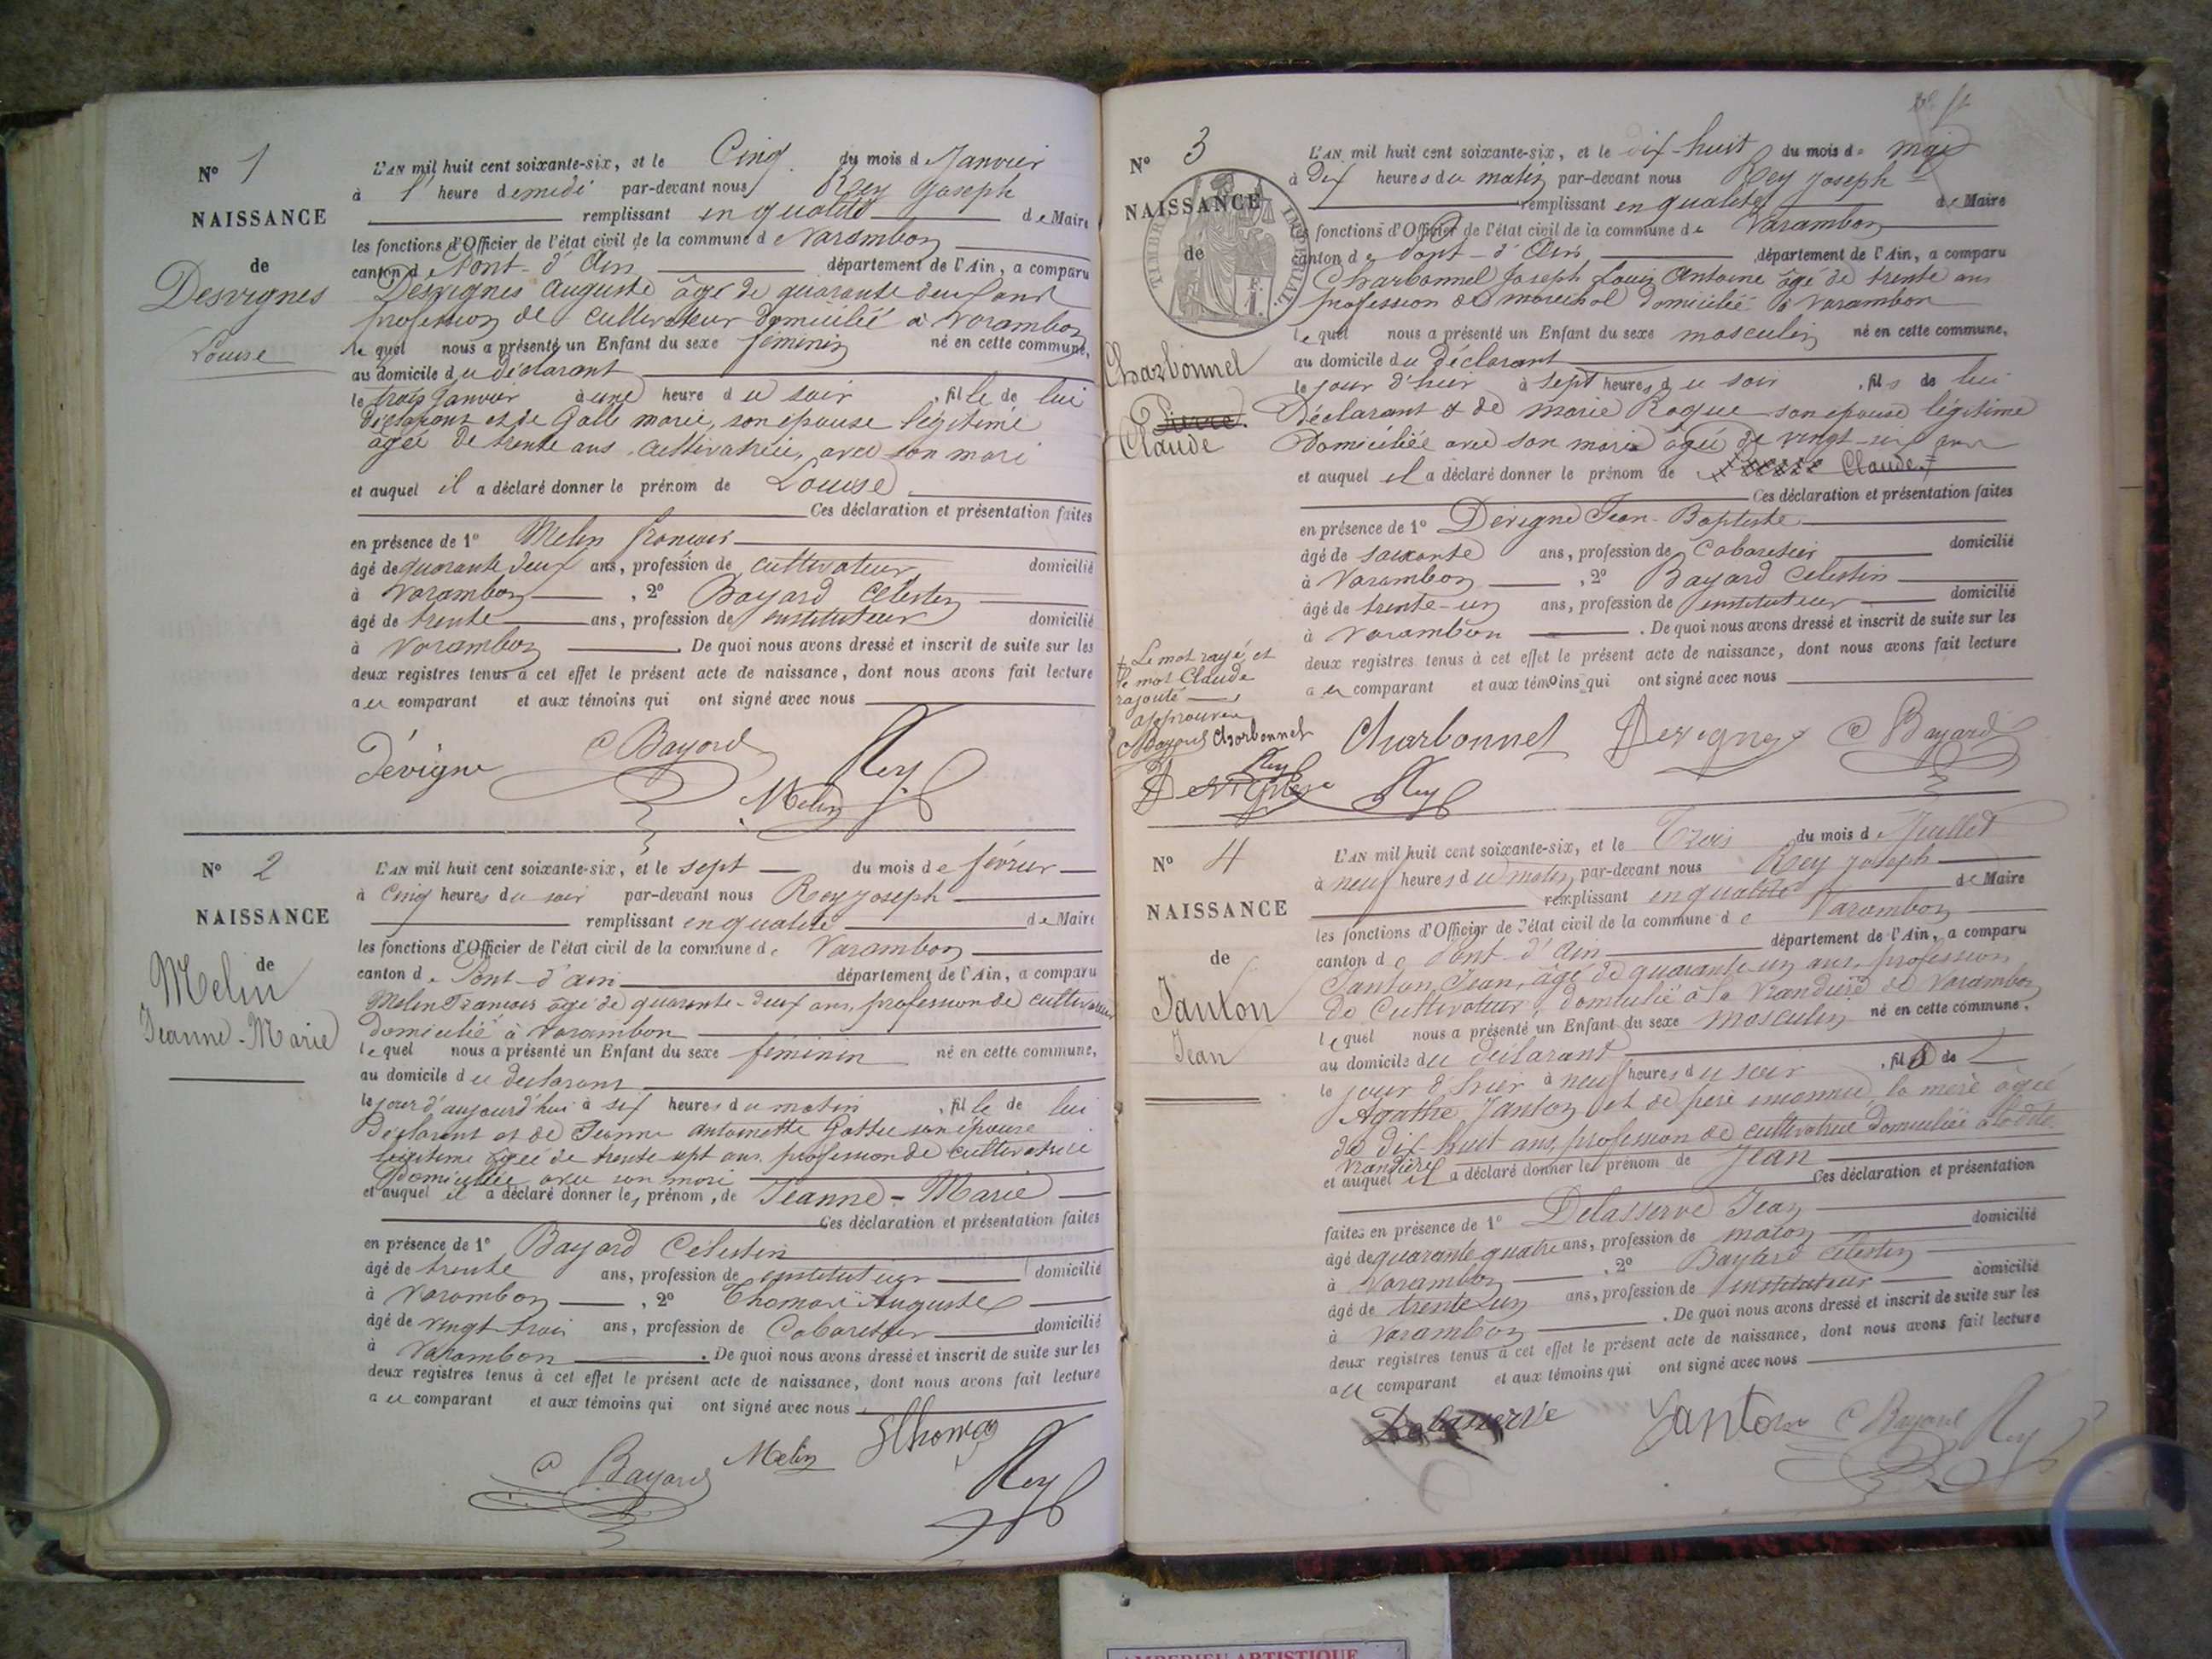 N° 1
NAISSANCE
de
Desvignes
Louise
L'AN mil huit cent soixante-six, et le Cinq du mois d Janvier
à 1 heure de midi par-devant nous Rey Joseph
remplissant en qualité de Maire
les fonctions d'Officier de l'état civil de la commune de Varambon
canton d Pont-d'Ain département de l'Ain, a comparu
Desvignes Auguste âgé de quarante deux ans
profession de cultivateur domicilié à Varambon
lequel nous a présenté un Enfant du sexe féminin né en cette commune,
au domicile du déclarant
le trois Janvier à une heure du soir, fille de lui
déclarant et de Galle marie, son épouse légitime
âgée de trente ans, cultivatrice, avec son mari
et auquel il a déclaré donner le prénom de Louise
Ces déclaration et présentation faites
en présence de 1° Melin françois
âgé de quarante deux ans, profession de cultivateur domicilié
à Varambon, 2° Bayard Célestin
âgé de trente ans, profession de instituteur domicilié
à Varambon. De quoi nous avons dressé et inscrit de suite sur les
deux registres tenus à cet effet le présent acte de naissance, dont nous avons fait lecture
au comparant et aux témoins qui ont signé avec nous
Dévigne C Bayard Rey
Melin
N° 2
NAISSANCE
de
Melin
Jeanne-Marie
L'AN mil huit cent soixante-six, et le sept du mois de février
à cinq heures du soir par-devant nous Rey Joseph
remplissant en qualité de Maire
les fonctions d'Officier de l'état civil de la commune de Varambon
canton de Pont-d'ain département de l'Ain, a comparu
Melin François âgé de quarante-deux ans, profession de cultivateur
domicilié à Varambon
lequel nous a présenté un Enfant du sexe féminin né en cette commune,
au domicile du declarant
le jour d'aujourd'hui à six heures du matin, fille de lui
déclarant et de Jeanne antoinette son épouse
légitime âgée de trente sept ans profession de cultivatrice
Domiciliée avec son mari
et auquel il a déclaré donner le prénom de Jeanne-Marie
Ces déclaration et présentation faites
en présence de 1° Bayard Célestin
âgé de trente ans, profession de instituteur domicilié
à Varambon, 2° Thomas Auguste
âgé de vingt trois ans, profession de Cabaretier domicilié
à Varambon. De quoi nous avons dressé et inscrit de suite sur les
deux registres tenus à cet effet le présent acte de naissance, dont nous avons fait lecture
au comparant et aux témoins qui ont signé avec nous
C Bayard Melin Thomas
Rey
N° 3
NAISSANCE
de
TIMBRE IMPERIAL
Charbonnel
Pierre.
Claude
L'AN mil huit cent soixante-six, et le dix-huit du mois de mai
à Dix heures du matin par-devant nous Rey Joseph
remplissant en qualité de Maire
les fonctions d'Officier de l'état civil de la commune de Varambon
canton de Pont-d'Ain département de l'Ain, a comparu
Charbonnel Joseph Louis Antoine âgé de trente ans
profession de marechal domicilié à Varambon
lequel nous a présenté un Enfant du sexe masculin né en cette commune,
au domicile du déclarant
le jour d'hier à sept heures du soir, fils de lui
Déclarant & de marie Roque son épouse légitime
Domiciliée avec son mari âgée de vingt-six ans
et auquel il a déclaré donner le prénom de Pierre Claude.
Ces déclaration et présentation faites
en présence de 1° Devigne Jean-Baptiste
âgé de soixante ans, profession de Cabaretier domicilié
à Varambon, 2° Bayard Celestin
âgé de trente-un ans, profession de instituteur domicilié
à Varambon. De quoi nous avons dressé et inscrit de suite sur les
deux registres tenus à cet effet le présent acte de naissance, dont nous avons fait lecture
au comparant et aux témoins qui ont signé avec nous
Le mot rayé, et
le mot Claude
rajouté
approuvés
C Bayard Charbonnel
Rey
Devigne
Charbonnel Devigne C Bayard
Rey
N° 4
NAISSANCE
de
Janton
Jean
L'AN mil huit cent soixante-six, et le Trois du mois d Juillet
à neuf heures du matin par-devant nous Rey Joseph
remplissant en qualité de Maire
les fonctions d'Officier de l'état civil de la commune de Varambon
canton de Pont-d'Ain département de l'Ain, a comparu
Janton Jean, âgé de quarante-un ans, profession
de Cultivateur, domicilié à la Vrandière de Varambon
lequel nous a présenté un Enfant du sexe masculin né en cette commune,
au domicile du déclarant
le jour d'hier à neuf heures du soir, fils de
Agathe Janton et de père inconnu, la mère âgée
de dix-huit ans, profession de cultivatrice domiciliée à la dite
Vrandière
et auquel il a déclaré donner le prénom de Jean
Ces déclaration et présentation
faites en présence de 1° Delasserve Jean
âgé de quarante quatre ans, profession de maçon domicilié
à Varambon, 2° Bayard Célestin
âgé de trente un ans, profession de instituteur domicilié
à Varambon. De quoi nous avons dressé et inscrit de suite sur les
deux registres tenus à cet effet le présent acte de naissance, dont nous avons fait lecture
au comparant et aux témoins qui ont signé avec nous
Delasserve Janton C Bayard Rey
AMBERIEU ARTISTIQUE